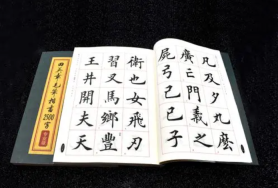 凡及夕丸麼
廣亡門義之
屍弓己已子
衛也女飛刃
習叉馬鄉豐
王井開夫天
田英章毛筆楷書2500字